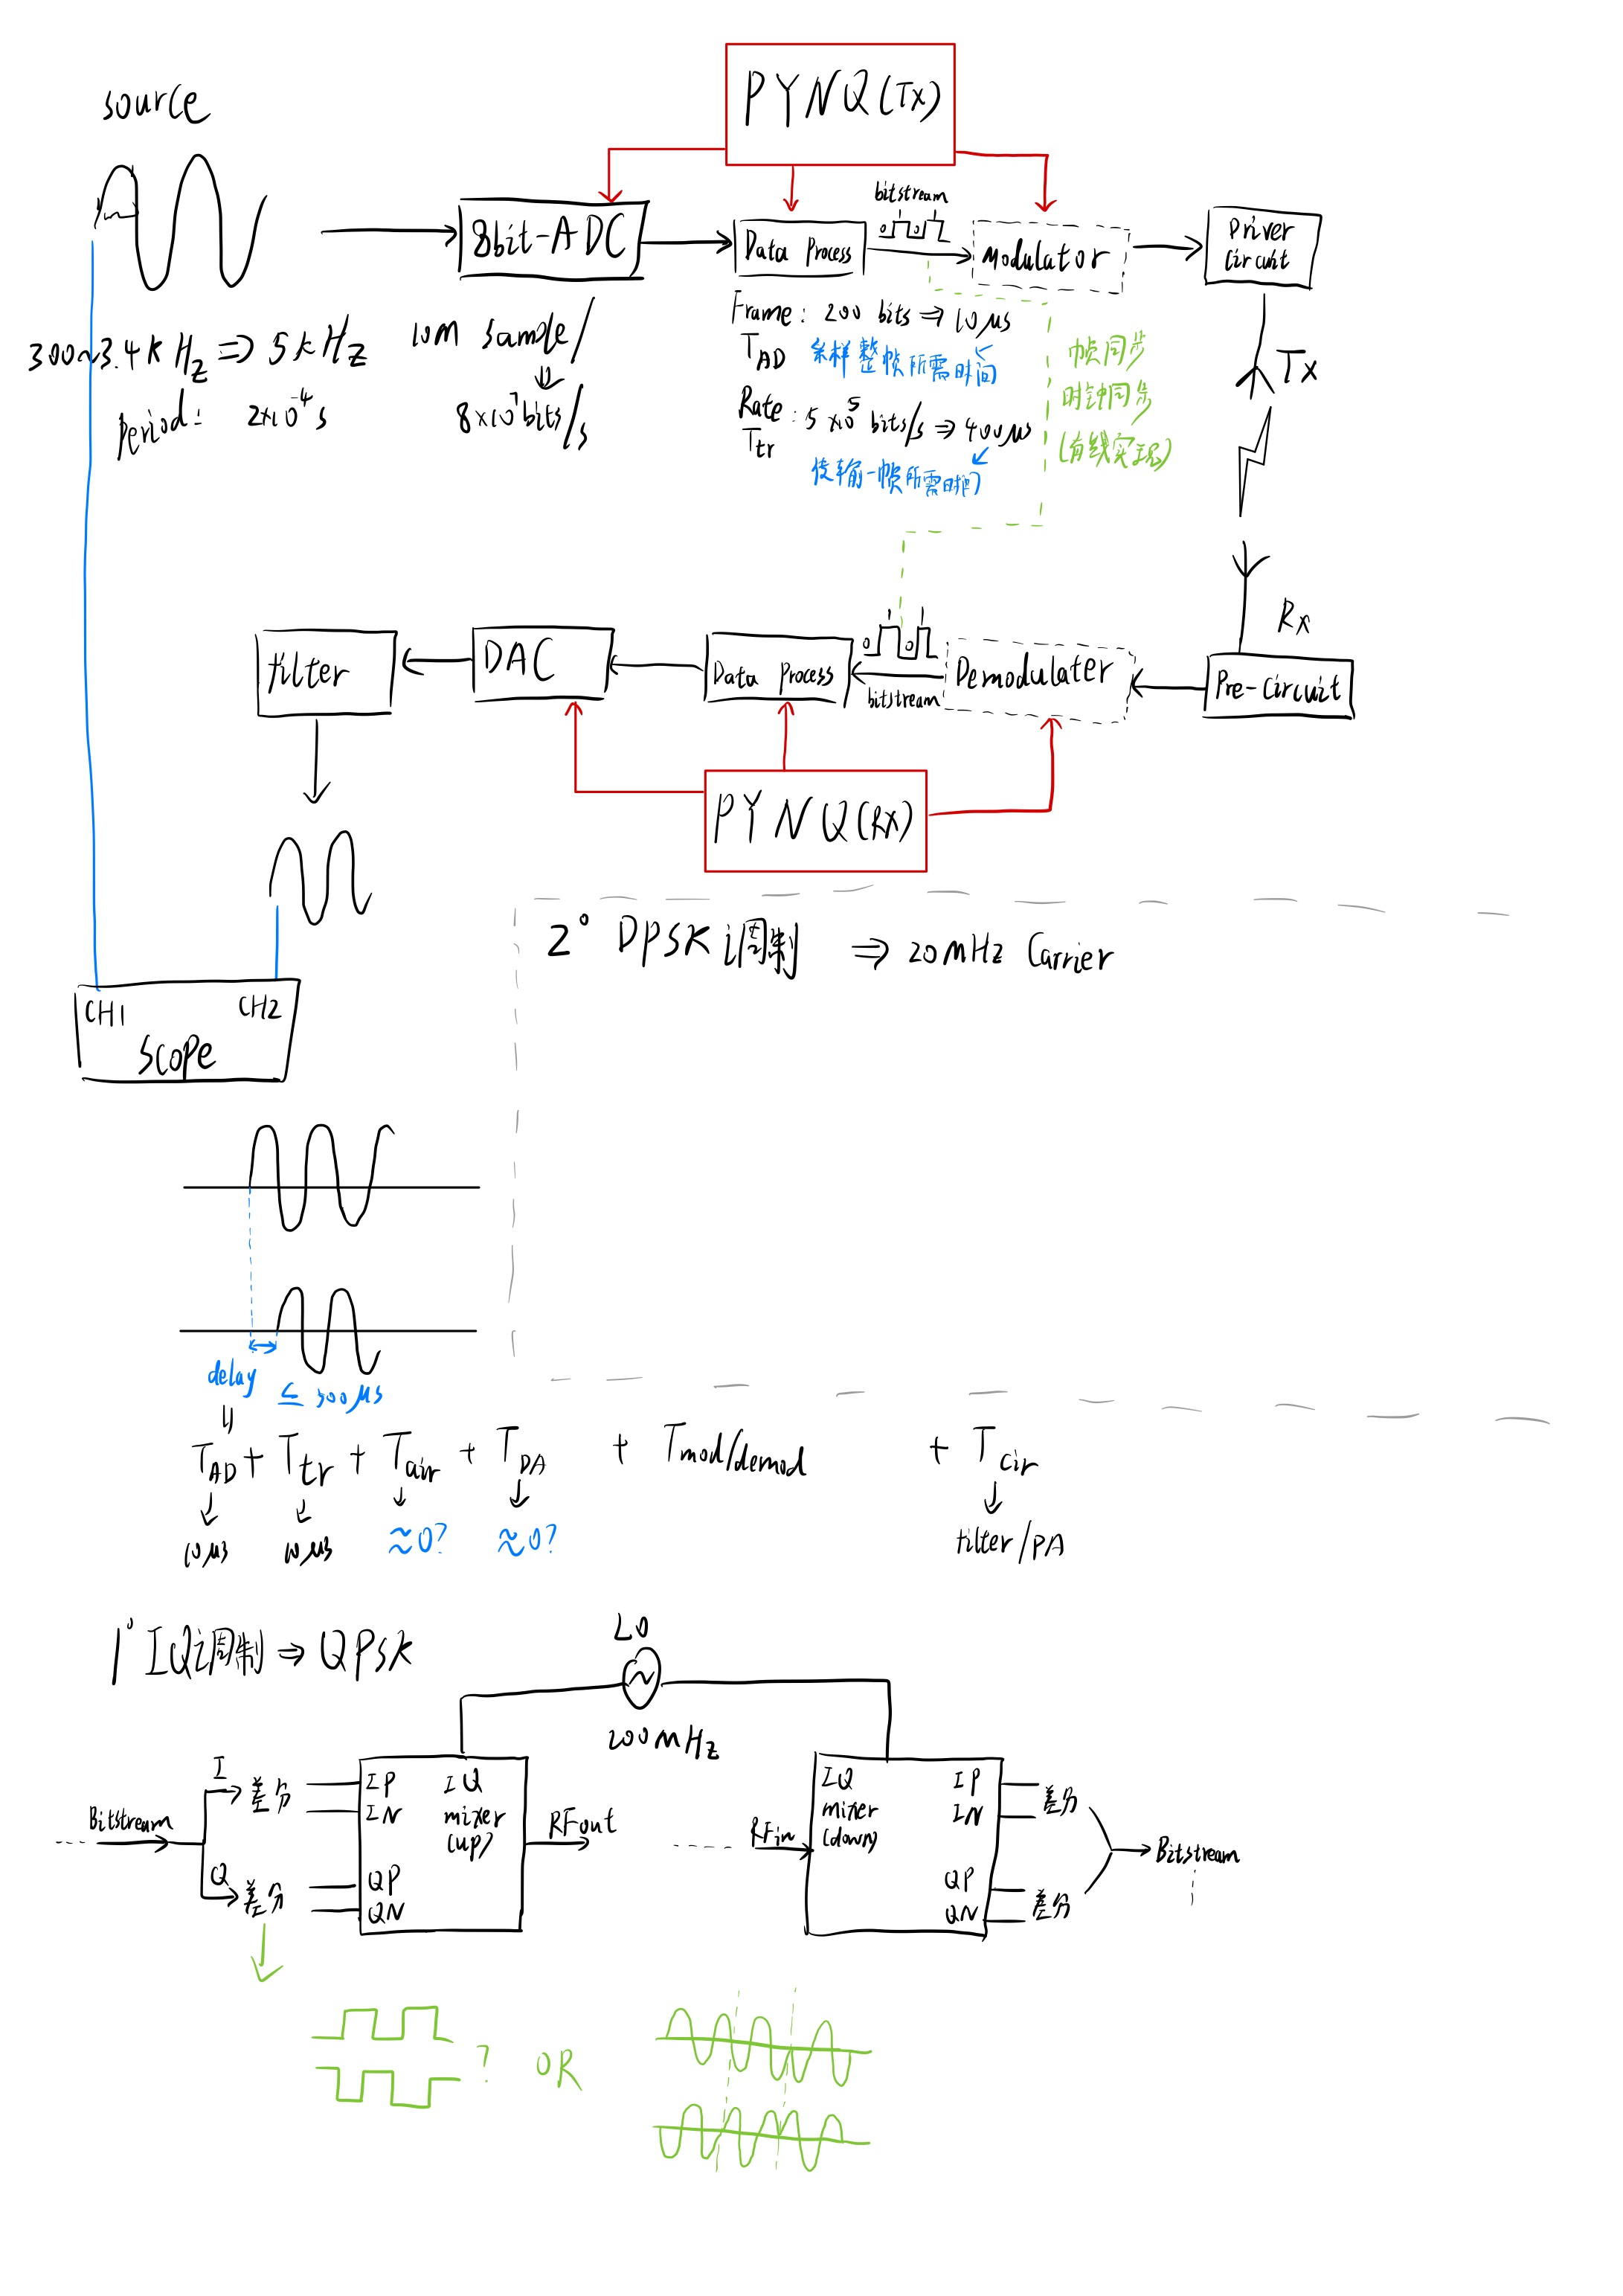 source
PYNQ(Tx)
8bit-ADC
Data Process
bitstream
0 1 0 1
Modulator
Driver
Circuit
300~3.4kHz ⇒ 5kHz
Period: 2×10⁻⁴s
10M sample/
⇓
8×10⁷bits/s
Frame: 200 bits ⇒ 10μs
T_AD 采样整帧所需时间
Rate: 5×10⁵ bits/s ⇒ 400μs
T_tr
传输一帧所需时间
帧同步
时钟同步
(有线实现)
Tx
Rx
filter
DAC
Data Process
0 1 0 1
bitstream
Demodulater
Pre-Circuit
PYNQ(RX)
CH1 CH2
scope
2° DPSK调制 ⇒ 20MHz Carrier
delay ≤ 500μs
T_AD + T_tr + T_air + T_DA + T_mod/demod + T_cir
10μs 10μs ≈0? ≈0? filter/PA
1° IQ调制 ⇒ QPSK
LO
200MHz
Bitstream
I 差分
Q 差分
IP
IN
QP
QN
IQ
mixer
(up)
RFout
RFin
IQ
mixer
(down)
IP
IN
QP
QN
差分
差分
Bitstream
? OR